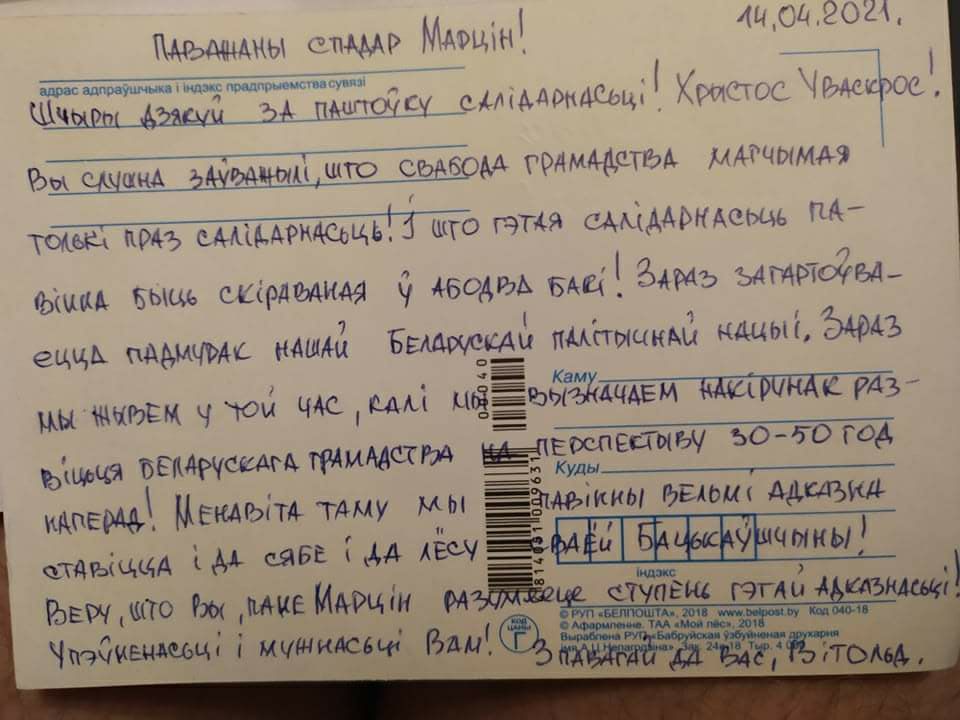 14.04.2021.
ПАВАЖАНЫ СПАДАР МАРЦІН!
адрас адпраўшчыка і індэкс прадпрыемства сувязі
ШЧЫРЫ ДЗЯКУЙ ЗА ПАШТОЎКУ САЛІДАРНАСЬЦІ! ХРЫСТОС УВАСКРОС!
ВЫ СЛУШНА ЗАЎВАЖЫЛІ, ШТО СВАБОДА ГРАМАДСТВА МАГЧЫМАЯ
ТОЛЬКІ ПРАЗ САЛІДАРНАСЬЦЬ! І ШТО ГЭТАЯ САЛІДАРНАСЬЦЬ ПА-
ВІННА БЫЦЬ СКІРАВАНАЯ Ў АБОДВА БАКІ! ЗАРАЗ ЗАГАРТОЎВА-
ЕЦЦА ПАДМУРАК НАШАЙ БЕЛАРУСКАЙ ПАЛІТЫЧНАЙ НАЦЫІ. ЗАРАЗ
Каму
МЫ ЖЫВЕМ У ТОЙ ЧАС, КАЛІ МЫ ВЫЗНАЧАЕМ НАКІРУНАК РАЗ-
ВІЦЬЦЯ БЕЛАРУСКАГА ГРАМАДСТВА НА ПЕРСПЕКТЫВУ 30-50 ГОД
Куды
НАПЕРАД! МЕНАВІТА ТАМУ МЫ ПАВІННЫ ВЕЛЬМІ АДКАЗНА
СТАВІЦЦА І ДА СЯБЕ І ДА ЛЁСУ СВАЁЙ БАЦЬКАЎШЧЫНЫ!
індэкс
ВЕРУ, ШТО ВЫ, ПАНЕ МАРЦІН РАЗУМЕЕЦЕ СТУПЕНЬ ГЭТАЙ АДКАЗНАСЬЦІ!
© РУП «БЕЛПОШТА», 2018 www.belpost.by Код 040-18
© Афармленне. ТАА «Мой лёс», 2018
Выраблена РУП «Бабруйская ўзбуйненая друкарня
УПЭЎНЕНАСЬЦІ І МУЖНАСЬЦІ ВАМ! З ПАВАГАЙ ДА ВАС, ВІТОЛЬД.
КОД ЦАНЫ
Г
04040